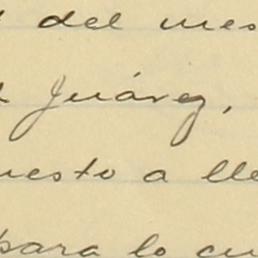 del mes
Juárez,
uesto a lle
para lo cu